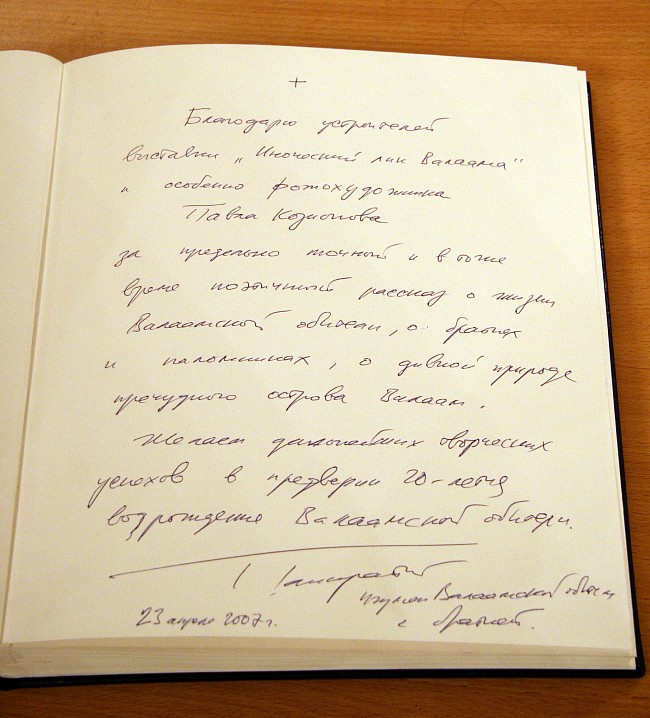 +
Благодарю устроителей
выставки „Иноческий лик Валаама"
и особенно фотохудожника
Павла
за предельно точный и в тоже
время поэтичный рассказ о жизни
Валаамской обители, о братьях
и паломниках, о дивной природе
пречудного острова Валаам.
Желаем дальнейших творческих
успехов в преддверии 20-летия
возрождения Валаамской обители.
игумен Валаамской обители
23 апреля 2007 г.
с братией.